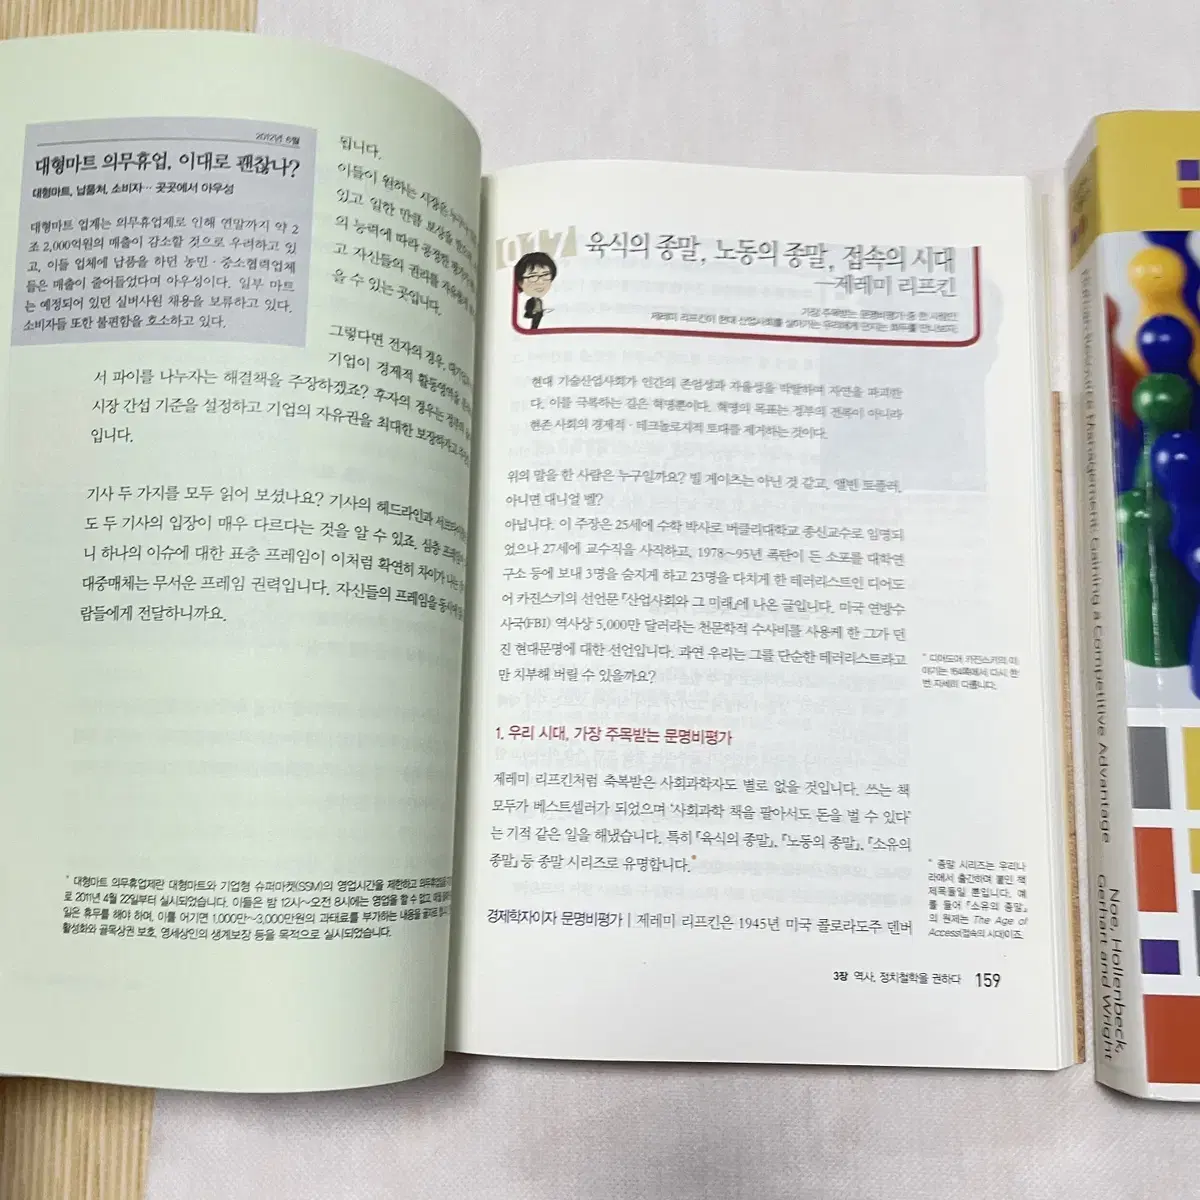 2012년 6월
대형마트 의무휴업, 이대로 괜찮나?
대형마트, 납품처, 소비자… 곳곳에서 아우성
대형마트 업계는 의무휴업제로 인해 연말까지 약 2
조 2,000억원의 매출이 감소할 것으로 우려하고 있
고, 이들 업체에 납품을 하던 농민·중소협력업체
들은 매출이 줄어들었다며 아우성이다. 일부 마트
는 예정되어 있던 실버사원 채용을 보류하고 있다.
소비자들 또한 불편함을 호소하고 있다.
됩니다.
이들이 원하는 시장은
있고 일한 만큼 보상을
의 능력에 따라 공정한
고 자신들의 권리를 자유롭게
을 수 있는 곳입니다.
그렇다면 전자의 경우,
기업이 경제적 활동영역을
서 파이를 나누자는 해결책을 주장하겠죠? 후자의 경우는 정부의
시장 간섭 기준을 설정하고 기업의 자유권을 최대한 보장하라고
입니다.
기사 두 가지를 모두 읽어 보셨나요? 기사의 헤드라인과
도 두 기사의 입장이 매우 다르다는 것을 알 수 있죠. 심층
니 하나의 이슈에 대한 표층 프레임이 이처럼 확연히 차이가 나는
대중매체는 무서운 프레임 권력입니다. 자신들의 프레임을
람들에게 전달하니까요.
* 대형마트 의무휴업제란 대형마트와 기업형 슈퍼마켓(SSM)의 영업시간을 제한하고 의무휴업을
로 2011년 4월 22일부터 실시되었습니다. 이들은 밤 12시~오전 8시에는 영업을 할 수 없고,
일은 휴무를 해야 하며, 이를 어기면 1,000만~3,000만원의 과태료를 부가하는 내용을 골자로
활성화와 골목상권 보호, 영세상인의 생계보장 등을 목적으로 실시되었습니다.
017
육식의 종말, 노동의 종말, 접속의 시대
—제레미 리프킨
가장 주목받는 문명비평가 중 한 사람인
제레미 리프킨이 현대 산업사회를 살아가는 우리에게 던지는 화두를 만나보자.
현대 기술산업사회가 인간의 존엄성과 자율성을 박탈하며 자연을 파괴한
다. 이를 극복하는 길은 혁명뿐이다. 혁명의 목표는 정부의 전복이 아니라
현존 사회의 경제적·테크놀로지적 토대를 제거하는 것이다.
위의 말을 한 사람은 누구일까요? 빌 게이츠는 아닌 것 같고, 앨빈 토플러,
아니면 대니얼 벨?
아닙니다. 이 주장은 25세에 수학 박사로 버클리대학교 종신교수로 임명되
었으나 27세에 교수직을 사직하고, 1978~95년 폭탄이 든 소포를 대학연
구소 등에 보내 3명을 숨지게 하고 23명을 다치게 한 테러리스트인 디어도
어 카진스키의 선언문 『산업사회와 그 미래』에 나온 글입니다. 미국 연방수
사국(FBI) 역사상 5,000만 달러라는 천문학적 수사비를 사용케 한 그가 던
진 현대문명에 대한 선언입니다. 과연 우리는 그를 단순한 테러리스트라고
만 치부해 버릴 수 있을까요?
* 디어도어 카진스키의 이
야기는 164쪽에서 다시 한
번 자세히 다룹니다.
1. 우리 시대, 가장 주목받는 문명비평가
제레미 리프킨처럼 축복받은 사회과학자도 별로 없을 것입니다. 쓰는 책
모두가 베스트셀러가 되었으며 '사회과학 책을 팔아서도 돈을 벌 수 있다'
는 기적 같은 일을 해냈습니다. 특히 『육식의 종말』, 『노동의 종말』, 『소유의
종말』 등 종말 시리즈로 유명합니다.*
* 종말 시리즈는 우리나
라에서 출간하며 붙인 책
제목들일 뿐입니다. 예
를 들어 『소유의 종말』
의 원제는 The Age of
Access(접속의 시대)이죠.
경제학자이자 문명비평가 | 제레미 리프킨은 1945년 미국 콜로라도주 덴버
3장 역사, 정치철학을 권하다 159
Management: Gaining a Competitive Advantage
Noe, Hollenbeck,
Gerhart and Wright